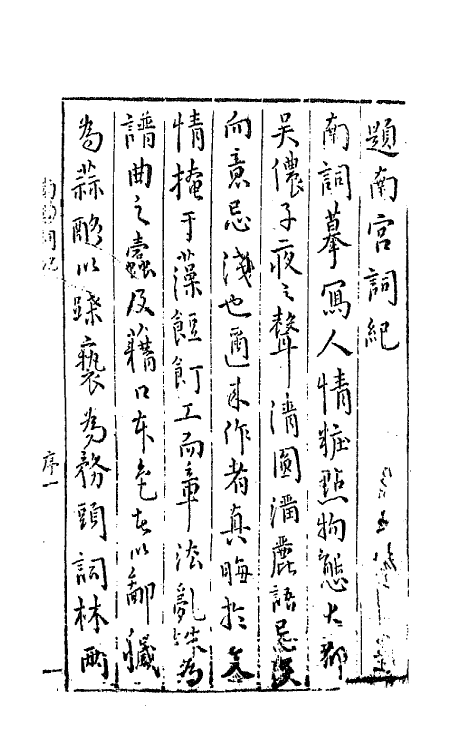 題南宮詞紀
南詞摹寫人情粧點物態大都
吳儂子夜之聲清圓濇麗語忌深
而意忌淺也邇來作者真晦於文
情掩于藻飣餖工而章法亂
譜曲之蠹及藉口本色者以鄙穢
為蒜酪以蹂褻為務頭詞林兩
南宮詞紀
序一